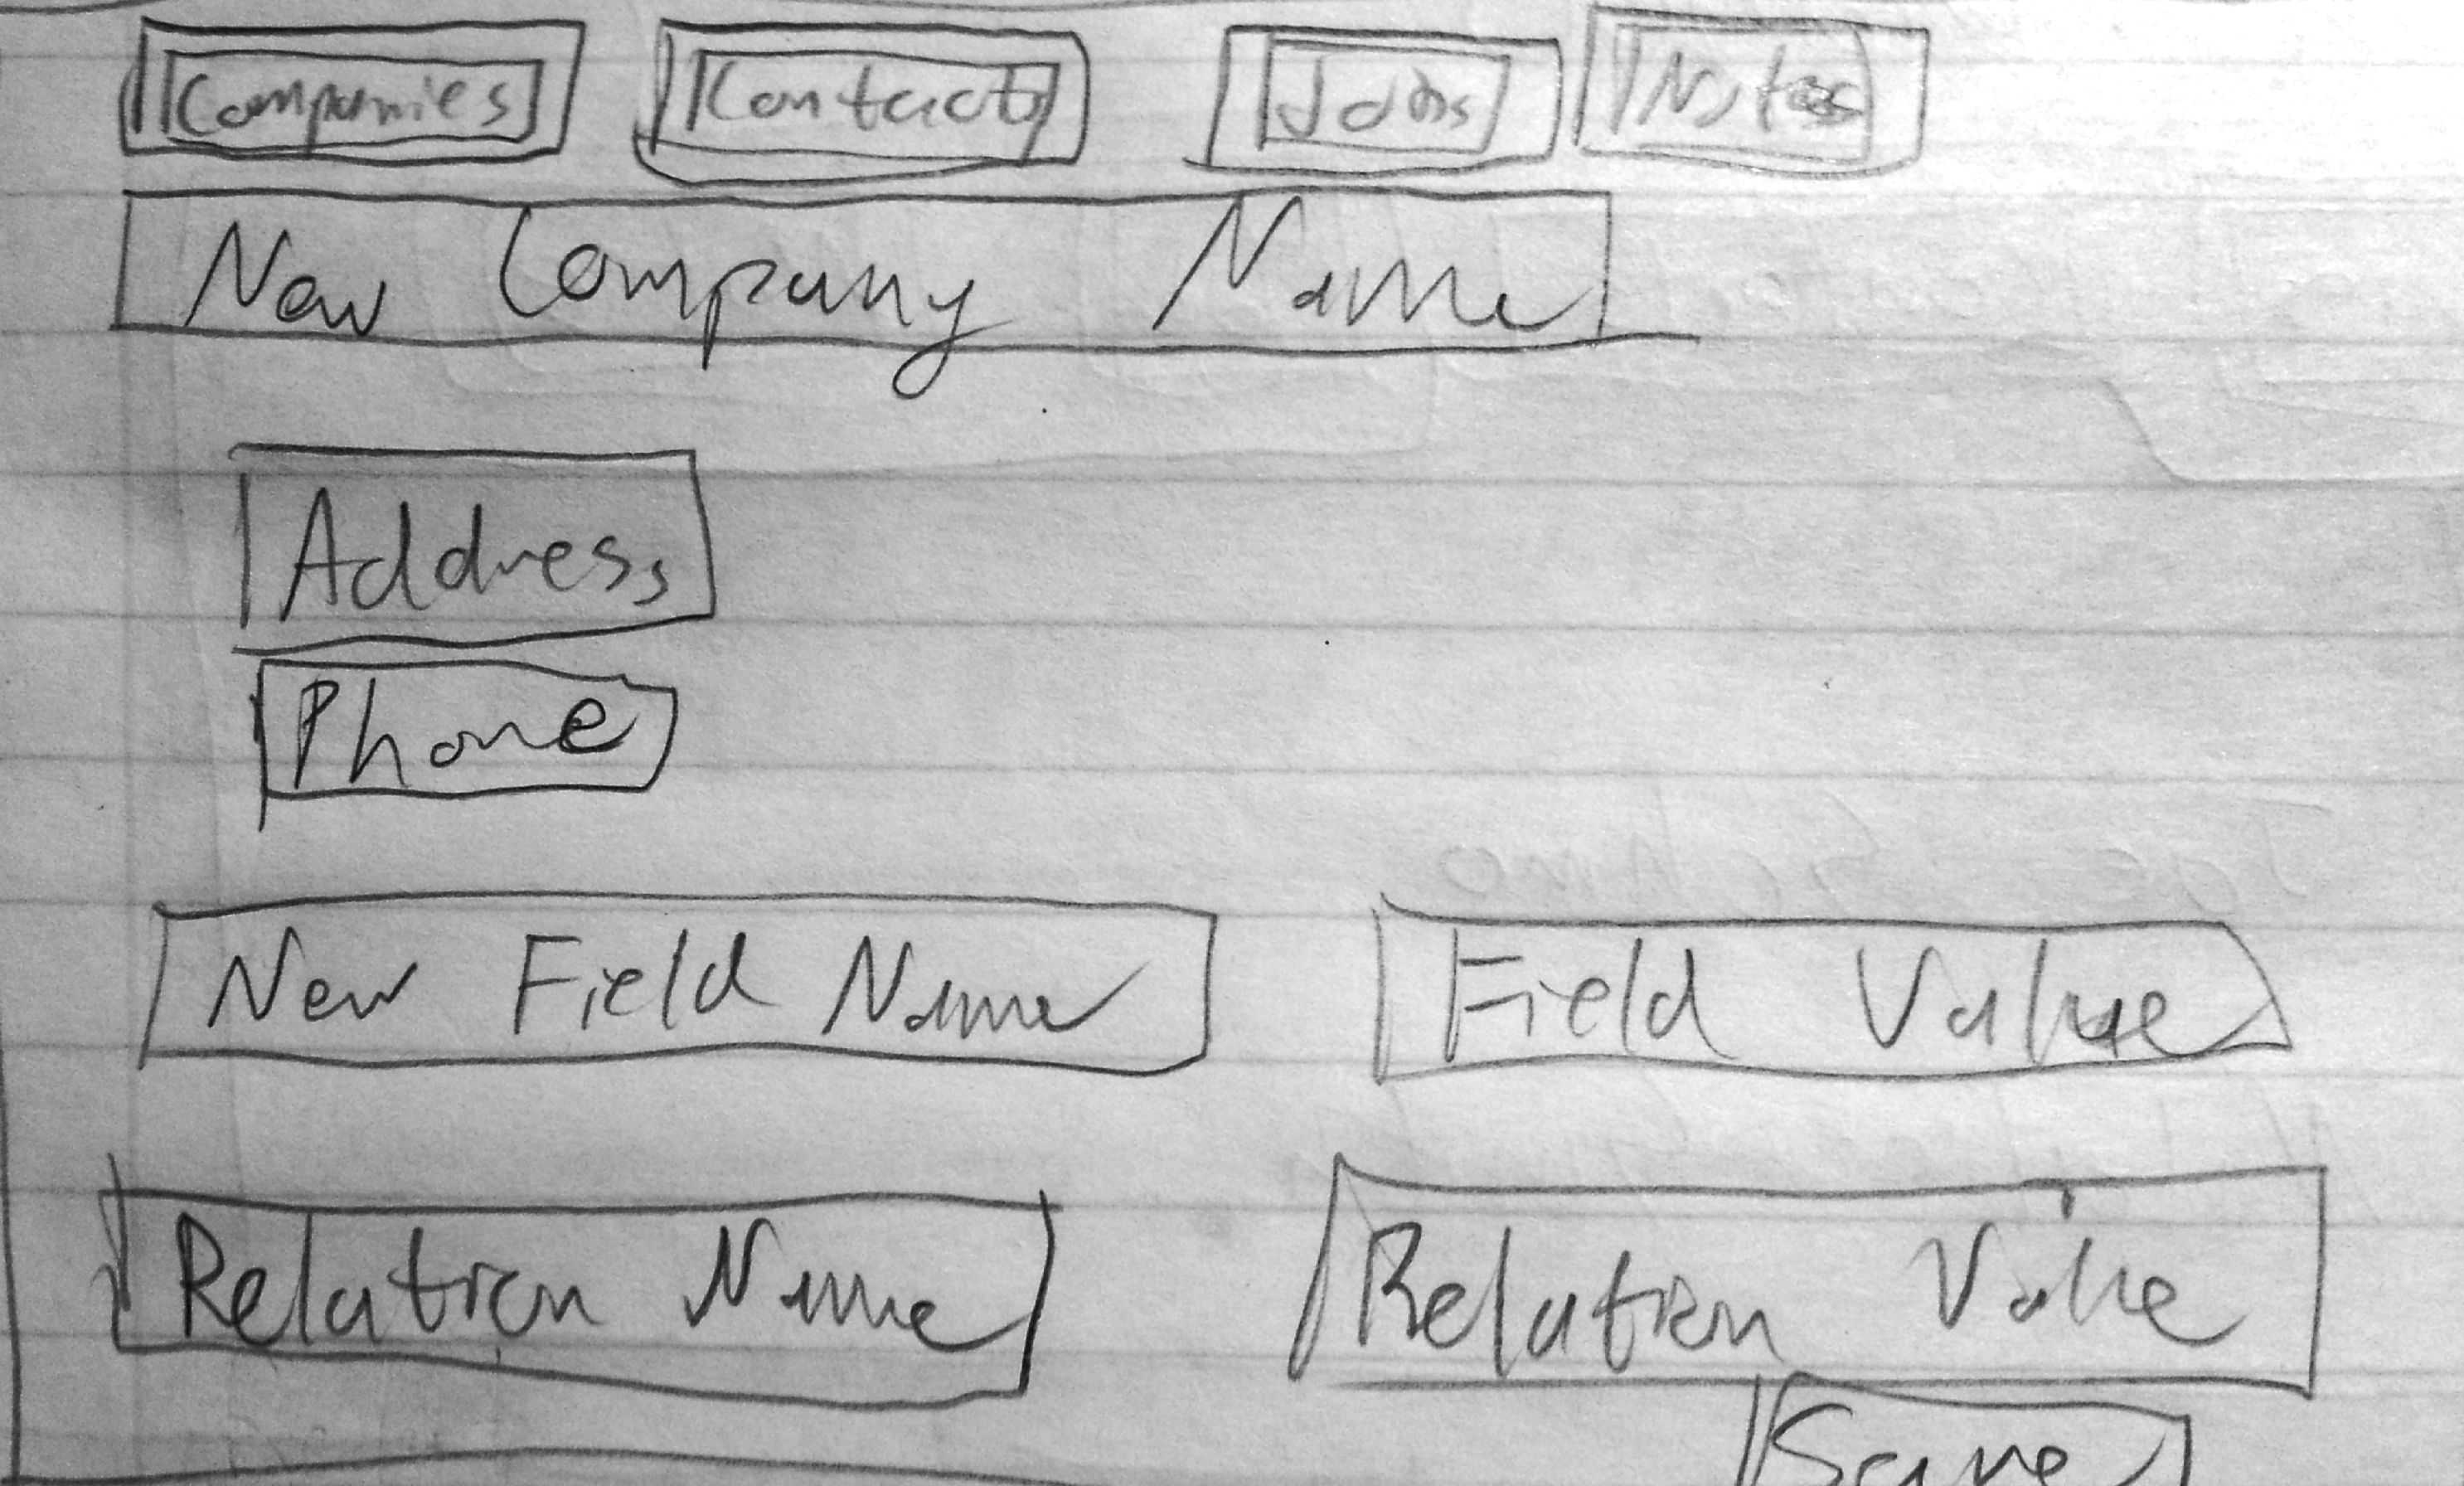 Companies Contacts Jobs Notes
New Company Name
Address
Phone
New Field Name Field Value
Relation Name Relation Value
Save